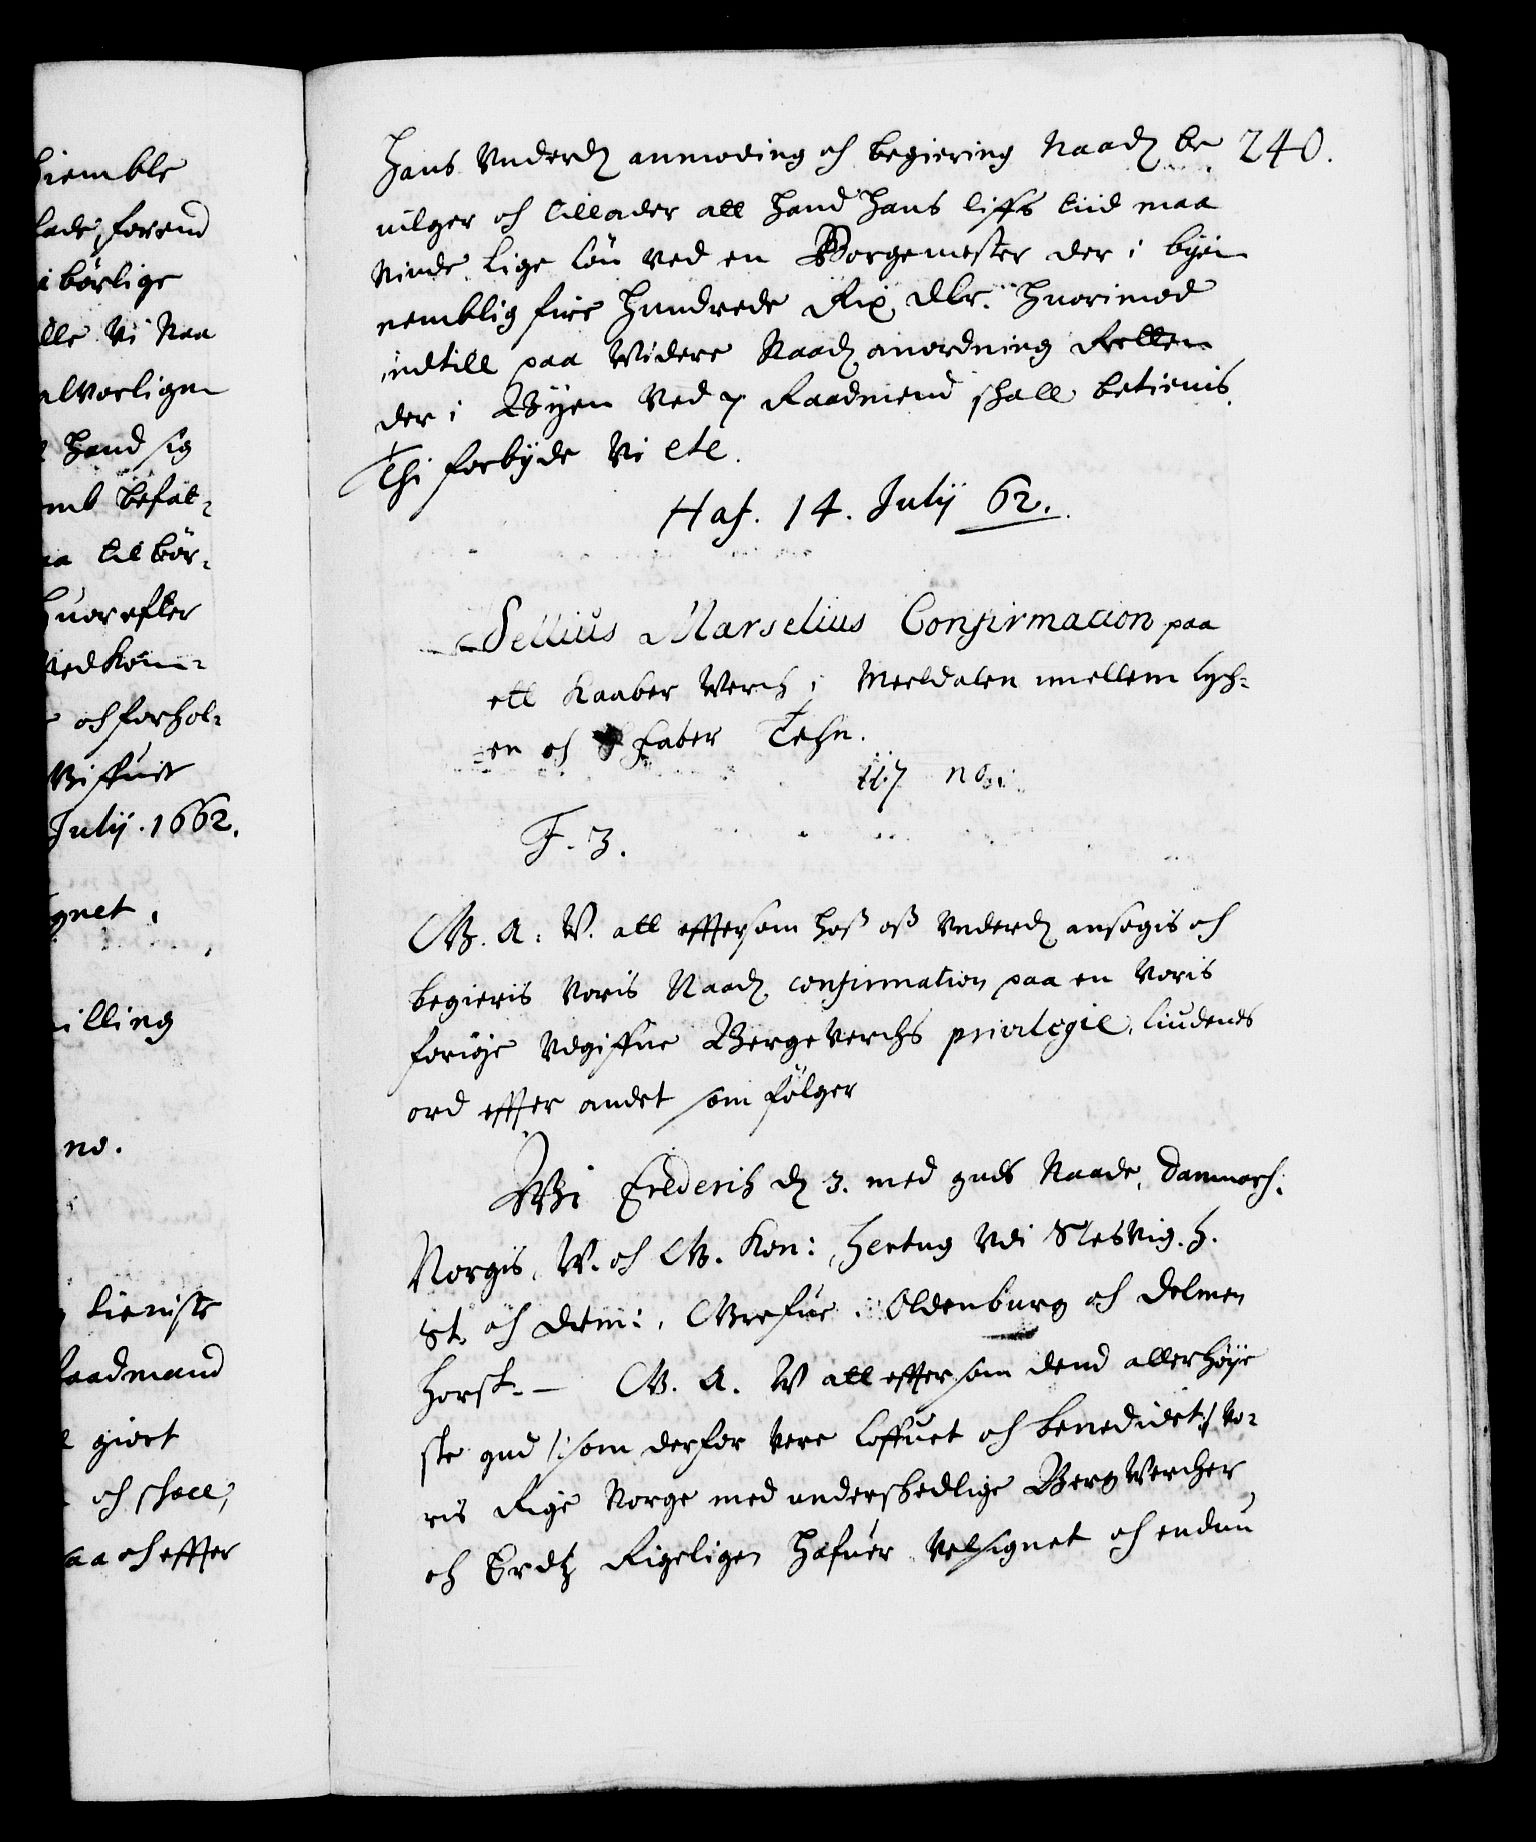 hiemble
lade, forend
börlige
lle Vi Naa
alvorligen
hand sig
mb befat-
a tilbör-
huorefter
Vedkom-
och forhol-
Vi ffuer
Julij. 1662.
gnet.
illing
no.
tieniste
Raadmand
giort
och schall,
aa och effter
240.
Hans Underd. anmoding och begiering Naad. be
vilger och tillader att hand hans liffs tiid maa
Niude lige lön ved en Borgemester der i byen
nemblig fire hundrede Rix dlr. huorimod
indtill paa Videre Naad. anordning Retten
der i Byen Ved 7 Raadmend schall betienis.
Thi forbyde Vi etc.
Haf. 14. Julij 62.
Sellius Marselius Confirmation paa
ett Kaaber Verch i Meeldalen imellem Lych-
en och Faber Tehn.
117 no.
F. 3.
G. A. V. att efftersom hoß oß Underd. ansögis och
begieris Voris Naad. confirmation paa en Voris
forrige Udgiffne Bergverchs privilegie, liudendes
ord effter andet som fölger
Wi Frederich d. 3. med guds Naade, Danmarch.
Norgis, W. och G. Kon: Hertug Udi Slesvig. H.
St. och ditm: Grefue i Oldenburg och Delmen
horst. — G. A. V att efftersom dend allerhöye
ste gud /: som derfor Vere loffuet och benedidet :/ Vo-
ris Rige Norge med underschedlige Berg Vercher
och Ertz Rigeligen hafuer Velsignet och endnu